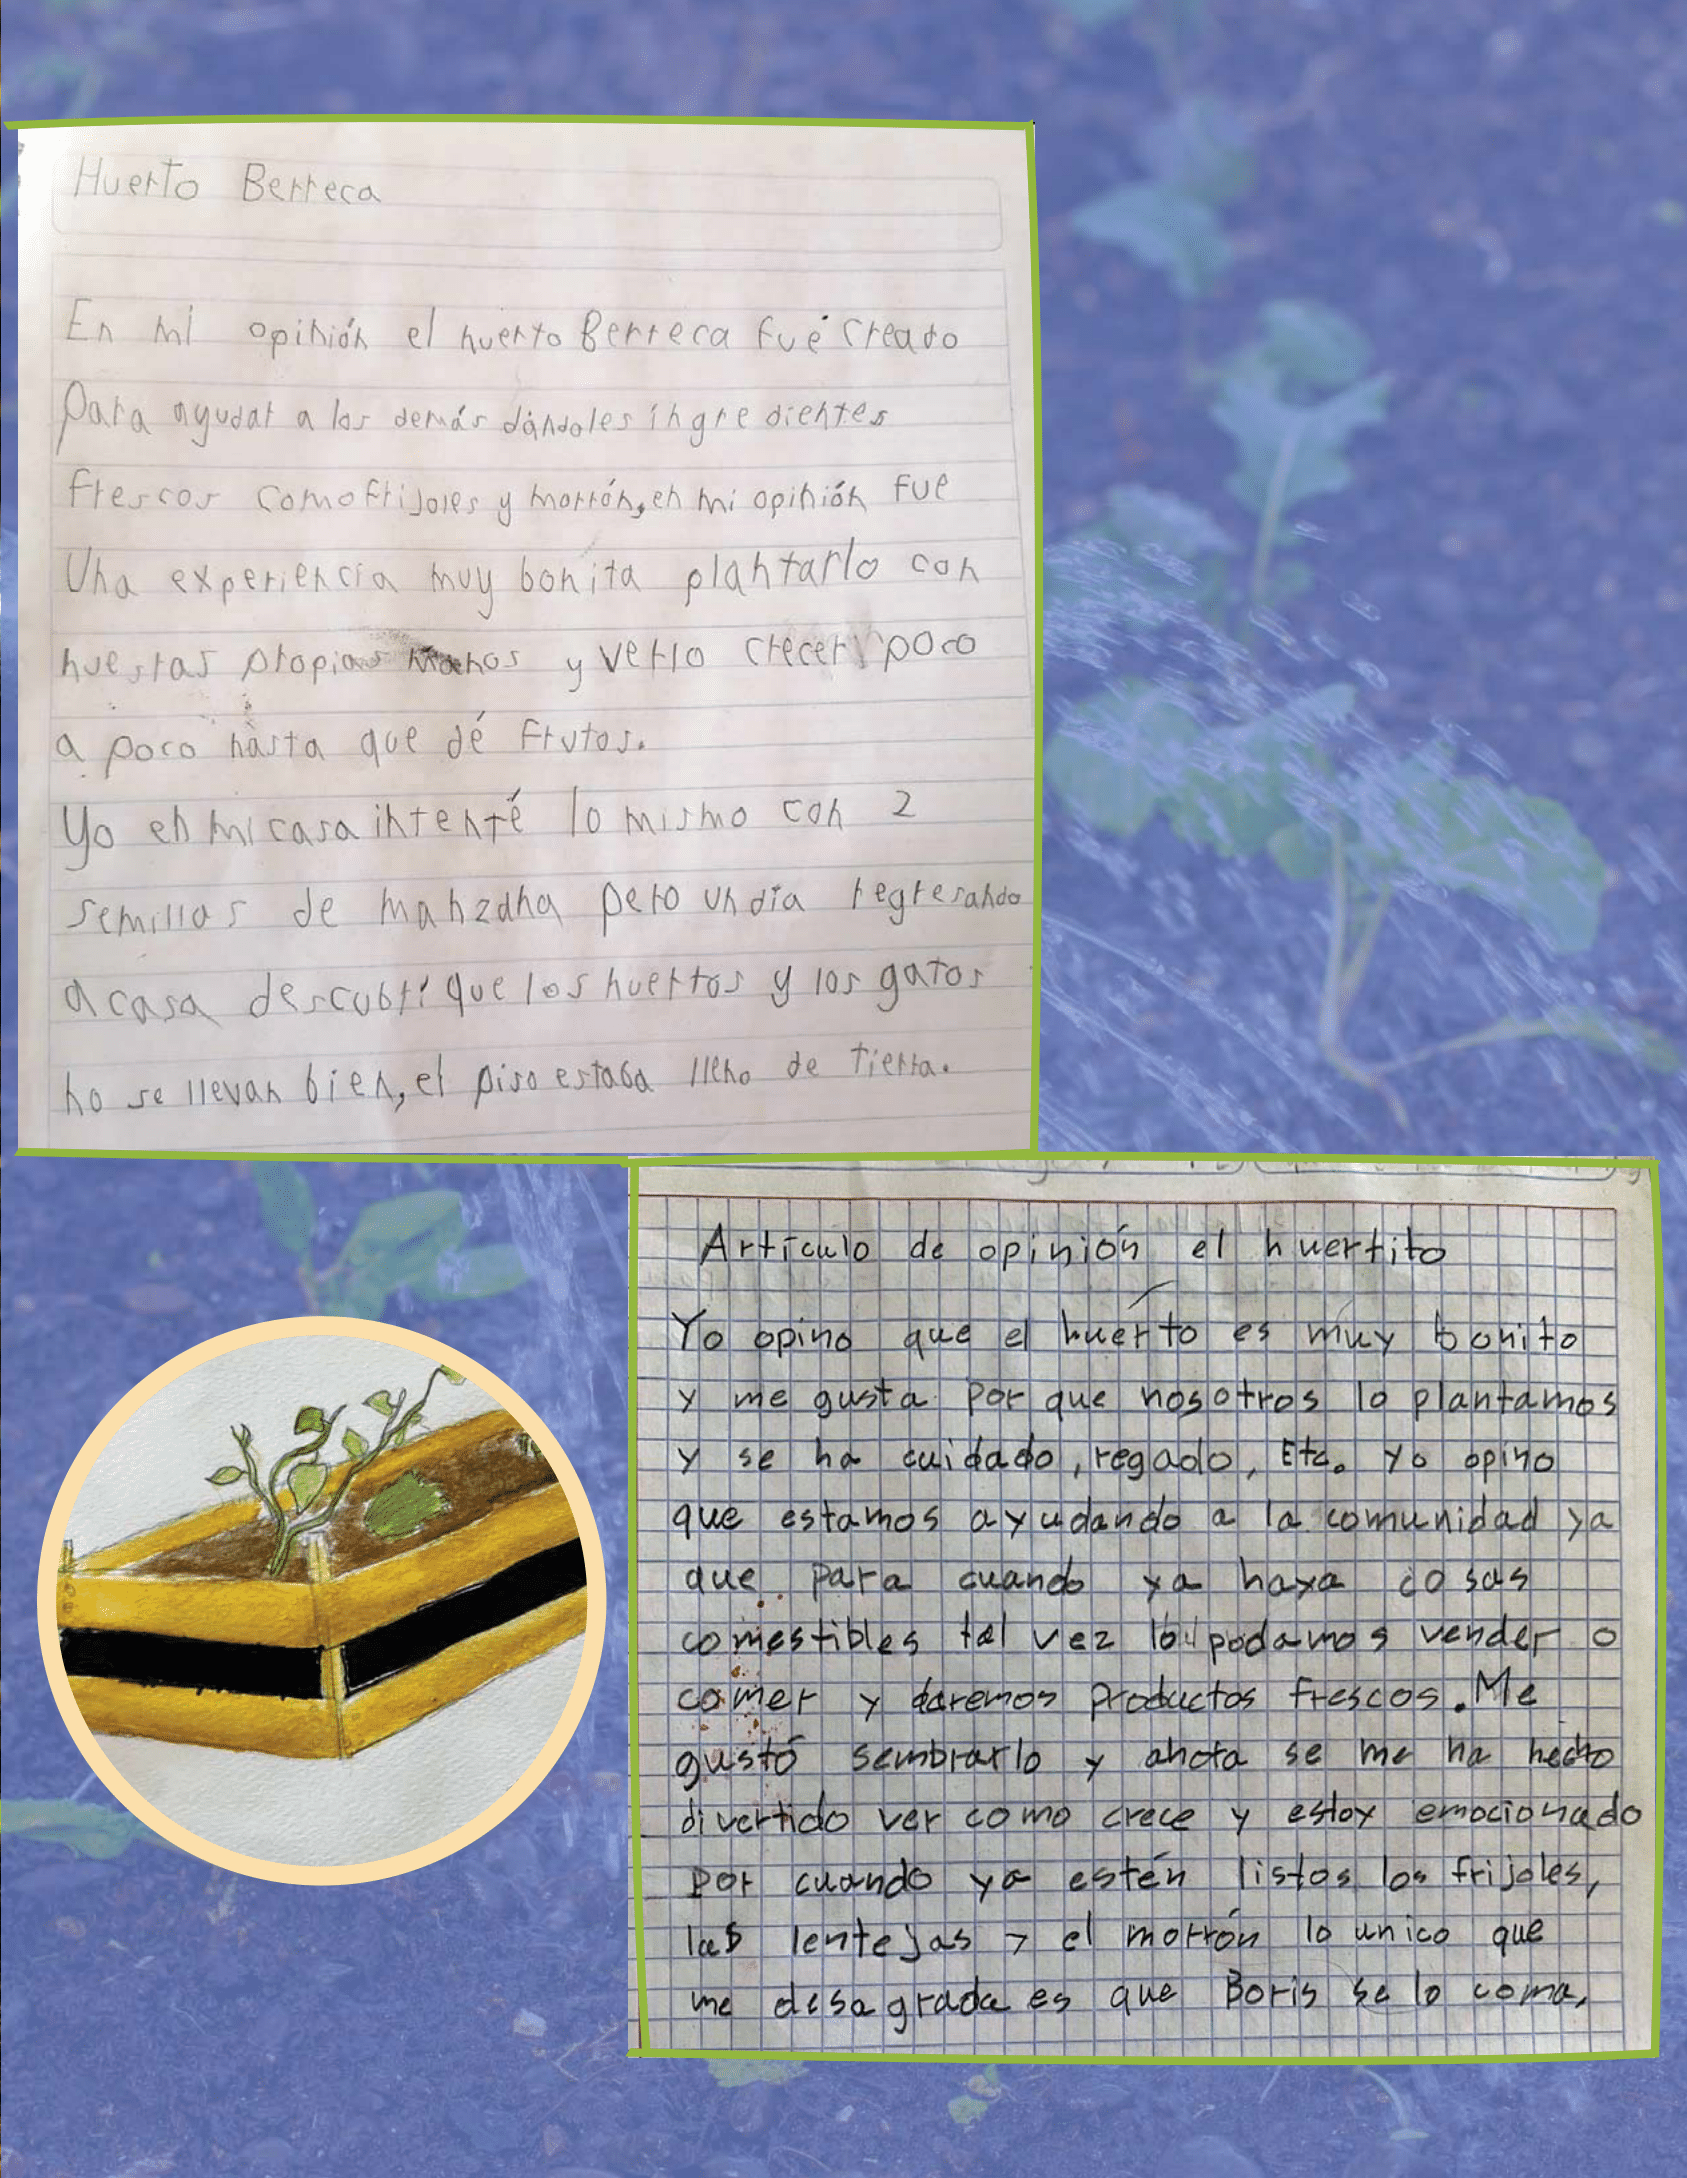 Huerto Berreca
En mi opinión el huerto Berreca fué creado
Para ayudar a los demás dándoles ingredientes
frescos como frijoles y morrón, en mi opinión fue
Una experiencia muy bonita plantarlo con
nuestas propias manos y verlo crecer poco
a poco hasta que dé frutos.
Yo en mi casa intenté lo mismo con 2
semillas de manzana pero un día regresando
a casa descubrí que los huertos y los gatos
no se llevan bien, el piso estaba lleno de tierra.
Artículo de opinión el huertito
Yo opino que el huérto es muy bonito
y me gusta por que nosotros lo plantamos
y se ha cuidado, regado, Etc. Yo opino
que estamos ayudando a la comunidad ya
que para cuando ya haya cosas
comestibles tal vez lo podamos vender o
comer y daremos productos frescos. Me
gustó sembrarlo y ahora se me ha hecho
divertido ver como crece y estoy emocionado
por cuando ya estén listos los frijoles,
las lentejas y el morrón lo unico que
me desagrada es que Boris se lo coma,